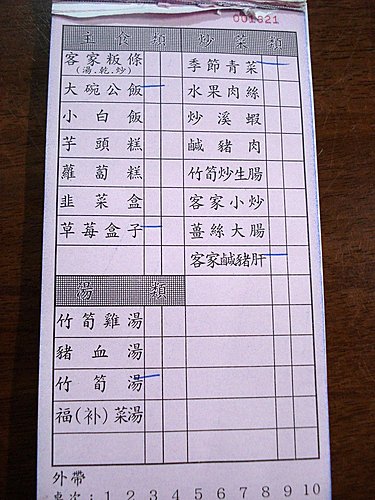 001621
主食類
客家粄條
(湯.乾.炒)
大碗公飯
小白飯
芋頭糕
蘿蔔糕
韭菜盒
草莓盒子
炒菜類
季節青菜
水果肉絲
炒溪蝦
鹹豬肉
竹筍炒生腸
客家小炒
薑絲大腸
客家鹹豬肝
湯類
竹筍雞湯
豬血湯
竹筍湯
福(补)菜湯
外帶
桌次:1 2 3 4 5 6 7 8 9 10